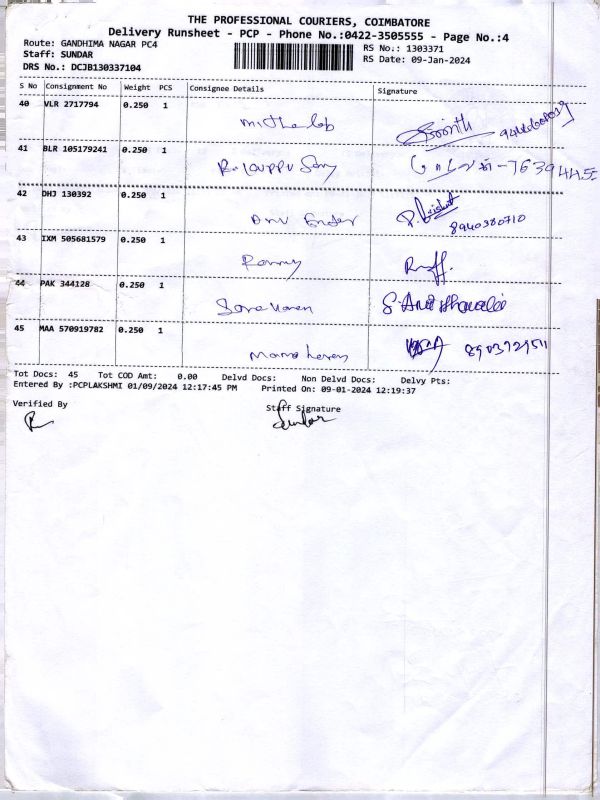 THE PROFESSIONAL COURIERS, COIMBATORE
Delivery Runsheet - PCP - Phone No.:0422-3505555 - Page No.:4
Route: GANDHIMA NAGAR PC4
RS No.: 1303371
Staff: SUNDAR
RS Date: 09-Jan-2024
DRS No.: DCJB130337104
S No Consignment No Weight PCS Consignee Details Signature
40 VLR 2717794 0.250 1
41 BLR 105179241 0.250 1
42 DHJ 130392 0.250 1
8940380710
43 IXM 505681579 0.250 1
44 PAK 344128 0.250 1
45 MAA 570919782 0.250 1
Tot Docs: 45 Tot COD Amt: 0.00 Delvd Docs: Non Delvd Docs: Delvy Pts:
Entered By :PCPLAKSHMI 01/09/2024 12:17:45 PM Printed On: 09-01-2024 12:19:37
Verified By
Staff Signature
Sundar